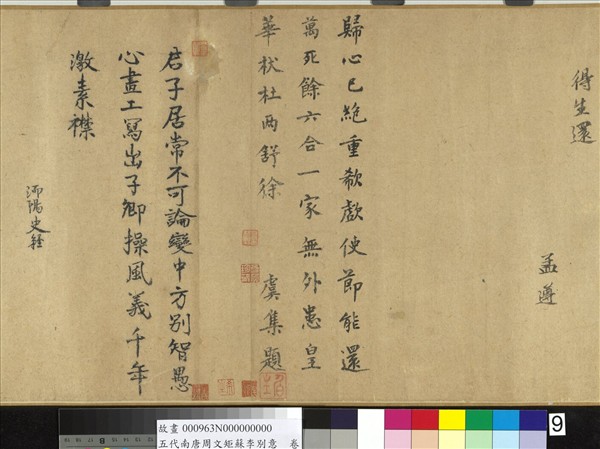 得生還
孟遵
歸心已絕重欷歔使節能還
萬死餘六合一家無外患皇
華杕杜兩舒徐
虞集題
君子居常不可論變中方別智愚
心畫工寫出子卿操風義千年
激素襟
沔陽史
故畫 000963N000000000
五代南唐周文矩蘇李別意 卷
9